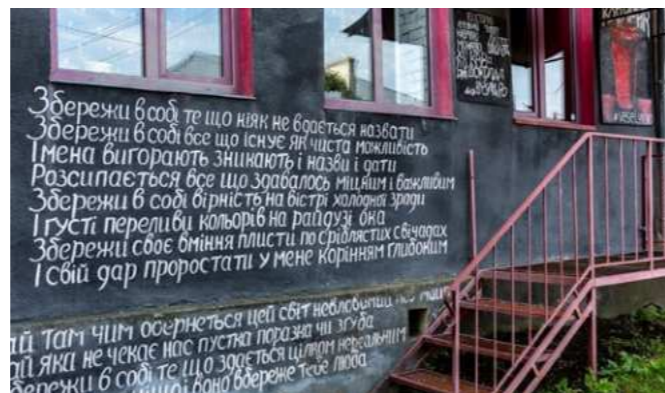 Збережи в собі те що ніяк не вдається назвати
Збережи в собі все що існує як чиста можливість
Імена вигорають зникають і назви і дати
Розсипається все що здавалось міцним і важливим
Збережи в собі вірність на вістрі холодної зради
І густі переливи кольорів на райдузі ока
Збережи своє вміння плисти по сріблястих свічадах
І свій дар проростати у мене корінням глибоким
там чим обернеться цей світ невловимий
яка не чекає нас пустка поразка чи згуба
Збережи в собі те що здається цілком нереальним
і воно вбереже тебе люба